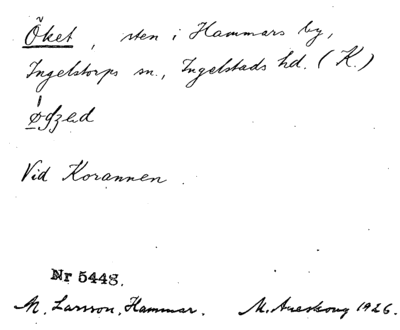 Öket, sten i Hammars by,
Ingelstorps sn., Ingelstads hd. (K.)
Vid Korannen.
Nr 5448.
M. Larsson, Hammar. M. Areskoug 1926.